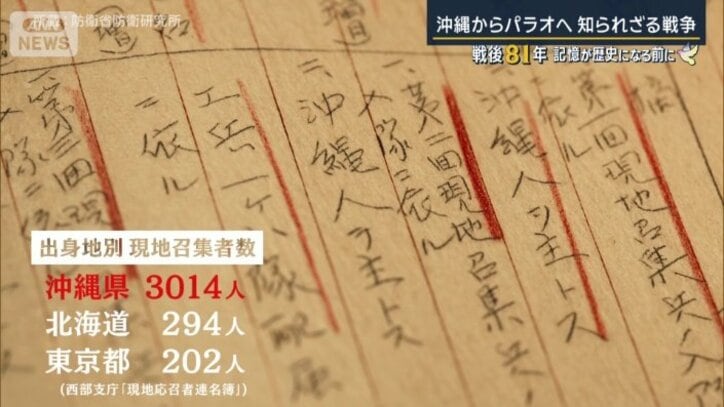 所蔵：防衛省防衛研究所
ANN
NEWS
沖縄からパラオへ 知られざる戦争
戦後81年 記憶が歴史になる前に
回現地召集兵ノ入
ニ依ル
沖縄人ヲ主トス
一、第二回現地召集兵ノ
入隊ニ依ル
二、沖縄人ヲ主トス
ニ依ル
一、第二回現
出身地別 現地召集者数
沖縄県 3014人
北海道 294人
東京都 202人
(西部支庁「現地応召者連名簿」)